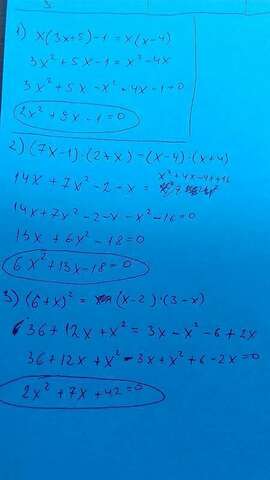 1) x(3x+5)-1=x(x-4)
3x²+5x-1=x²-4x
3x²+5x-x²+4x-1=0
2x²+9x-1=0
2) (7x-1)·(2+x)=(x-4)·(x+4)
14x+7x²-2-x= x²+4x-4x+16
14x+7x²-2-x-x²-16=0
13x+6x²-18=0
6x²+13x-18=0
3) (6+x)²= (x-2)·(3-x)
36+12x+x²=3x-x²-6+2x
36+12x+x²-3x+x²+6-2x=0
2x²+7x+42=0